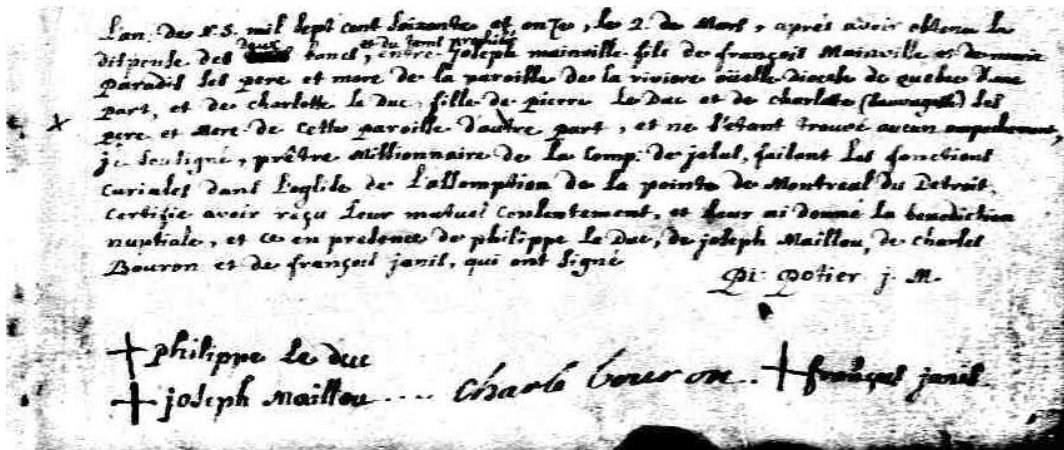 L'an de N.S. mil sept cent soixante et onze, le 2. de Mars, après avoir obtenu la
deux et du tems prohibé
dispense des bans, entre Joseph mainville fils de françois Mainville et de marie
Paradis ses pere et mere de la paroisse de la riviere oüelle Diocese de quebec d'une
part, et de charlotte le Duc fille de pierre Le Duc et de charlotte (sauvagesse) ses
x pere et Mere de cette paroisse d'autre part, et ne s'etant trouvé aucun empechement,
je soussigné, prêtre Missionnaire de la Comp. de jesus, faisant les fonctions
Curiales dans l'eglise de l'assomption de la pointe de Montreal du Detroit,
certifie avoir reçu leur mutuel Consentement, et leur ai donné la benediction
nuptiale, et ce en presence de philippe Le Duc, de joseph Maillou, de charles
Bouron et de françois janis, qui ont signé
Pi: Potier j. M.
+ philippe Le duc
+ joseph Maillou .... charle bouron .. + françois janis